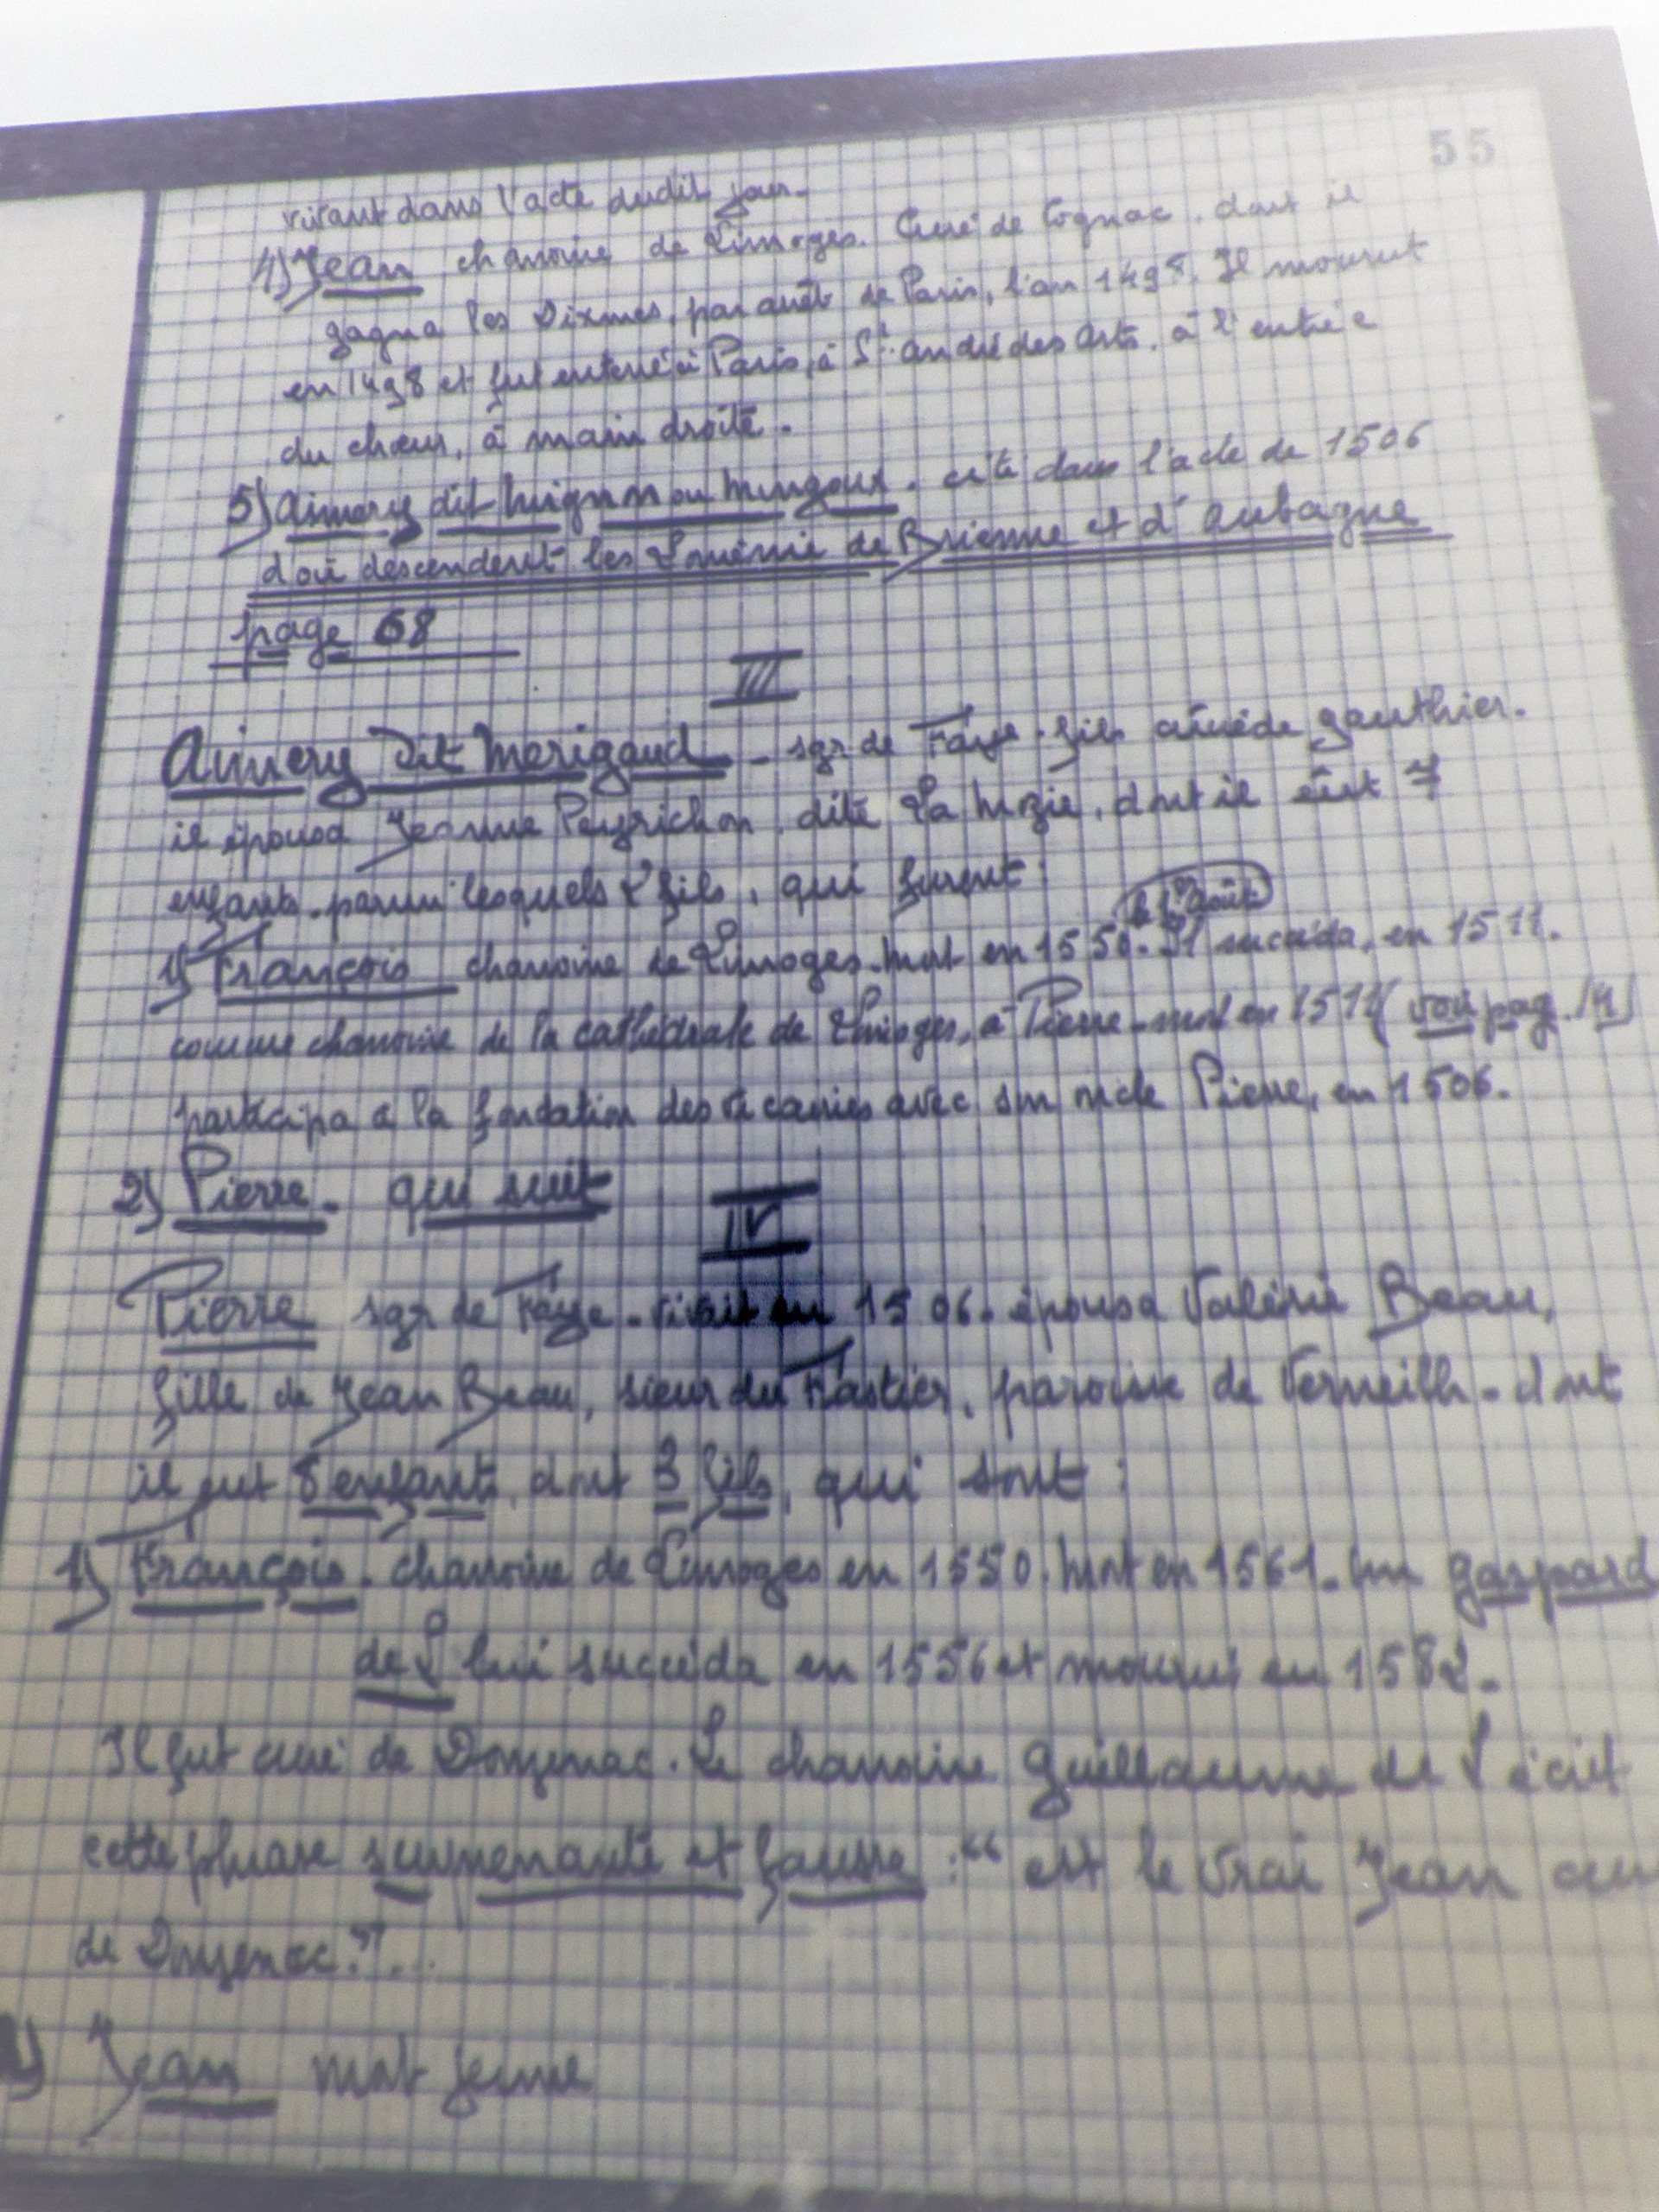 55
vivant dans l'acte dudit jour.
4) Jean chanoine de Limoges. Curé de Cognac, dont il
gagna les Dixmes, par arrêt de Paris, l'an 1498. Il mourut
en 1498 et fut enterré à Paris, à St. André des Arts, à l'entrée
du chœur, à main droite.
5) Aimery dit ou Mingoux. cité dans l'acte de 1506
d'où descendent les Loménie de Brienne et d'Aubagne
page 68
III
Aimery dit Merigaud - sgr de Faye. fils aîné de Gauthier.
il épousa Jeanne Peyrichon, dite La, dont il eut 7
enfants. parmi lesquels 2 fils, qui furent:
le Août
1) François chanoine de Limoges. Mort en 1550. Il succéda, en 1511.
comme chanoine de la cathédrale de Limoges, à Pierre - mort en 1511 (voir pag.
participa à la fondation des vicairies avec son oncle Pierre, en 1506.
2) Pierre. qui suit
IV
Pierre sgr de Faye. vivait en 1506. épousa Valérie Beau,
fille de Jean Beau, sieur du Fastier, paroisse de Verneilh - dont
il eut 8 enfants, dont 3 fils, qui sont:
1) François. chanoine de Limoges en 1550. Mort en 1561. Un Gaspard
de L lui succéda en 1556 et mourut en 1582.
Il fut curé de Donzenac. Le chanoine Guillaume de L écrit
cette phrase surprenante et fausse: "est le vrai Jean
de Donzenac."...
2) Jean mort jeune